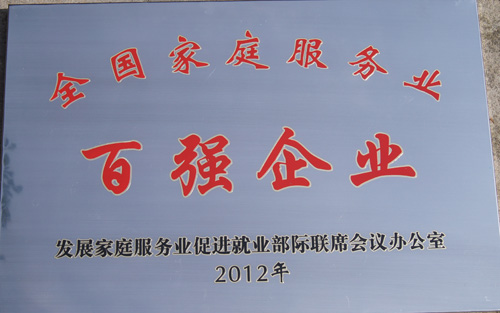 全国家庭服务业
百强企业
发展家庭服务业促进就业部际联席会议办公室
2012年